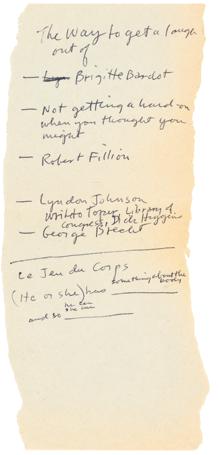 The Way to get a laugh
out of
— Brigitte Bardot
— Not getting a hard-on
when you thought you
might
— Robert Fillion
— Lyndon Johnson
write to Topor, Library of
Congress, Dick Higgins
— George Brecht
Le Jeu du Corps
something about the
body
(He or she) has
he can
she can
and so